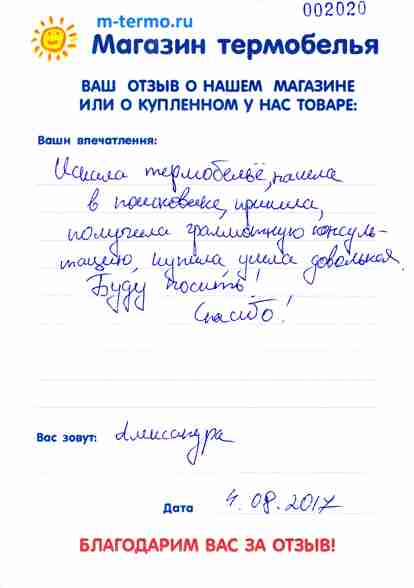 002020
m-termo.ru
Магазин термобелья
ВАШ ОТЗЫВ О НАШЕМ МАГАЗИНЕ
ИЛИ О КУПЛЕННОМ У НАС ТОВАРЕ:
Ваши впечатления:
Искала термобельё, нашла
в поисковике, пришла,
получила грамотную консуль-
тацию, купила ушла довольная.
Буду носить!
Спасибо!
Вас зовут: Александра
Дата 4.08.2017
БЛАГОДАРИМ ВАС ЗА ОТЗЫВ!